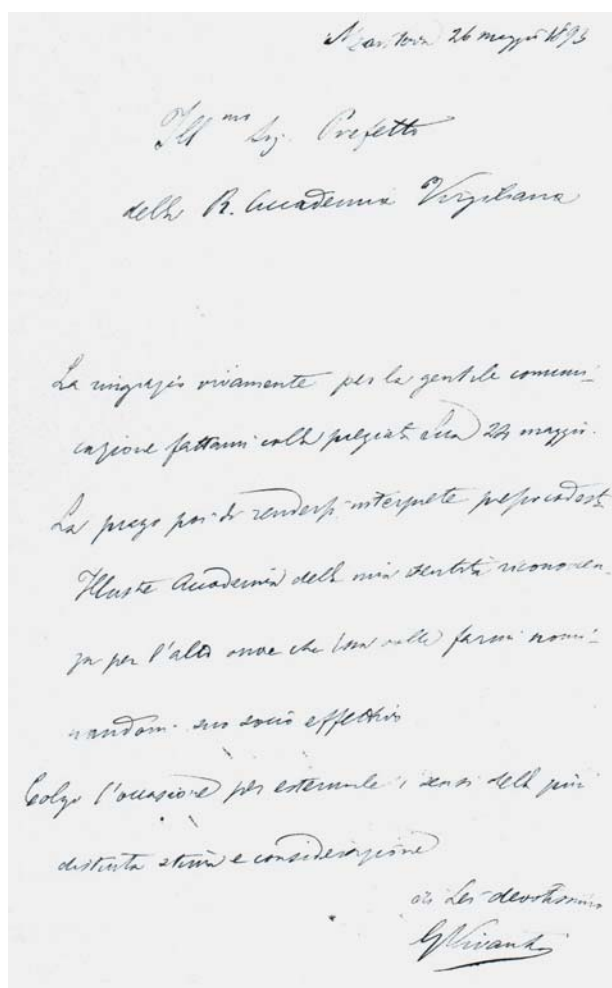 Mantova 26 maggio 1893
Ill.mo Sig. Prefetto
della R. Accademia Virgiliana
La ringrazio vivamente per la gentile comuni-
cazione fattami colla pregiata Sua 24 maggio.
La prego poi di rendersi interprete presso codesta
Illustre Accademia della mia sentita riconoscen-
za per l'alto onore che essa volle farmi nomi-
nandomi suo socio effettivo
Colgo l'occasione per esternarle i sensi della più
distinta stima e considerazione
di Lei devotissimo
G Vivanti